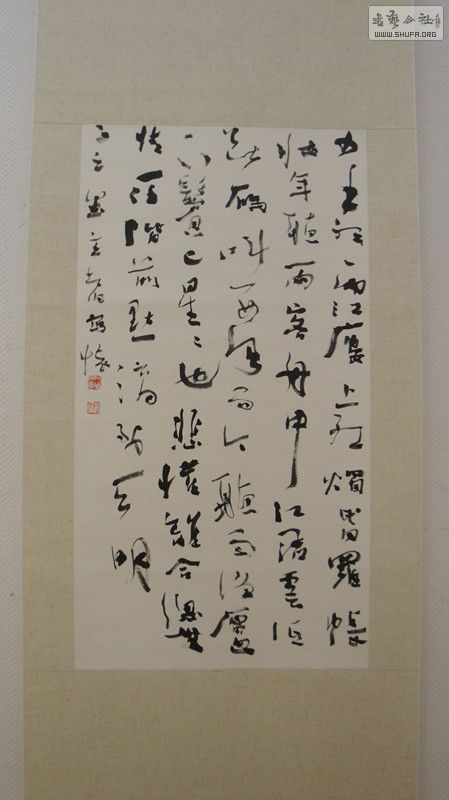 書藝公社
WWW.SHUFA.ORG
少年聽雨歌樓上紅燭昏羅帳
壯年聽雨客舟中江闊雲低
斷雁叫西風而今聽雨僧廬
下鬢已星星也悲歡離合總無
情一任階前點滴到天明